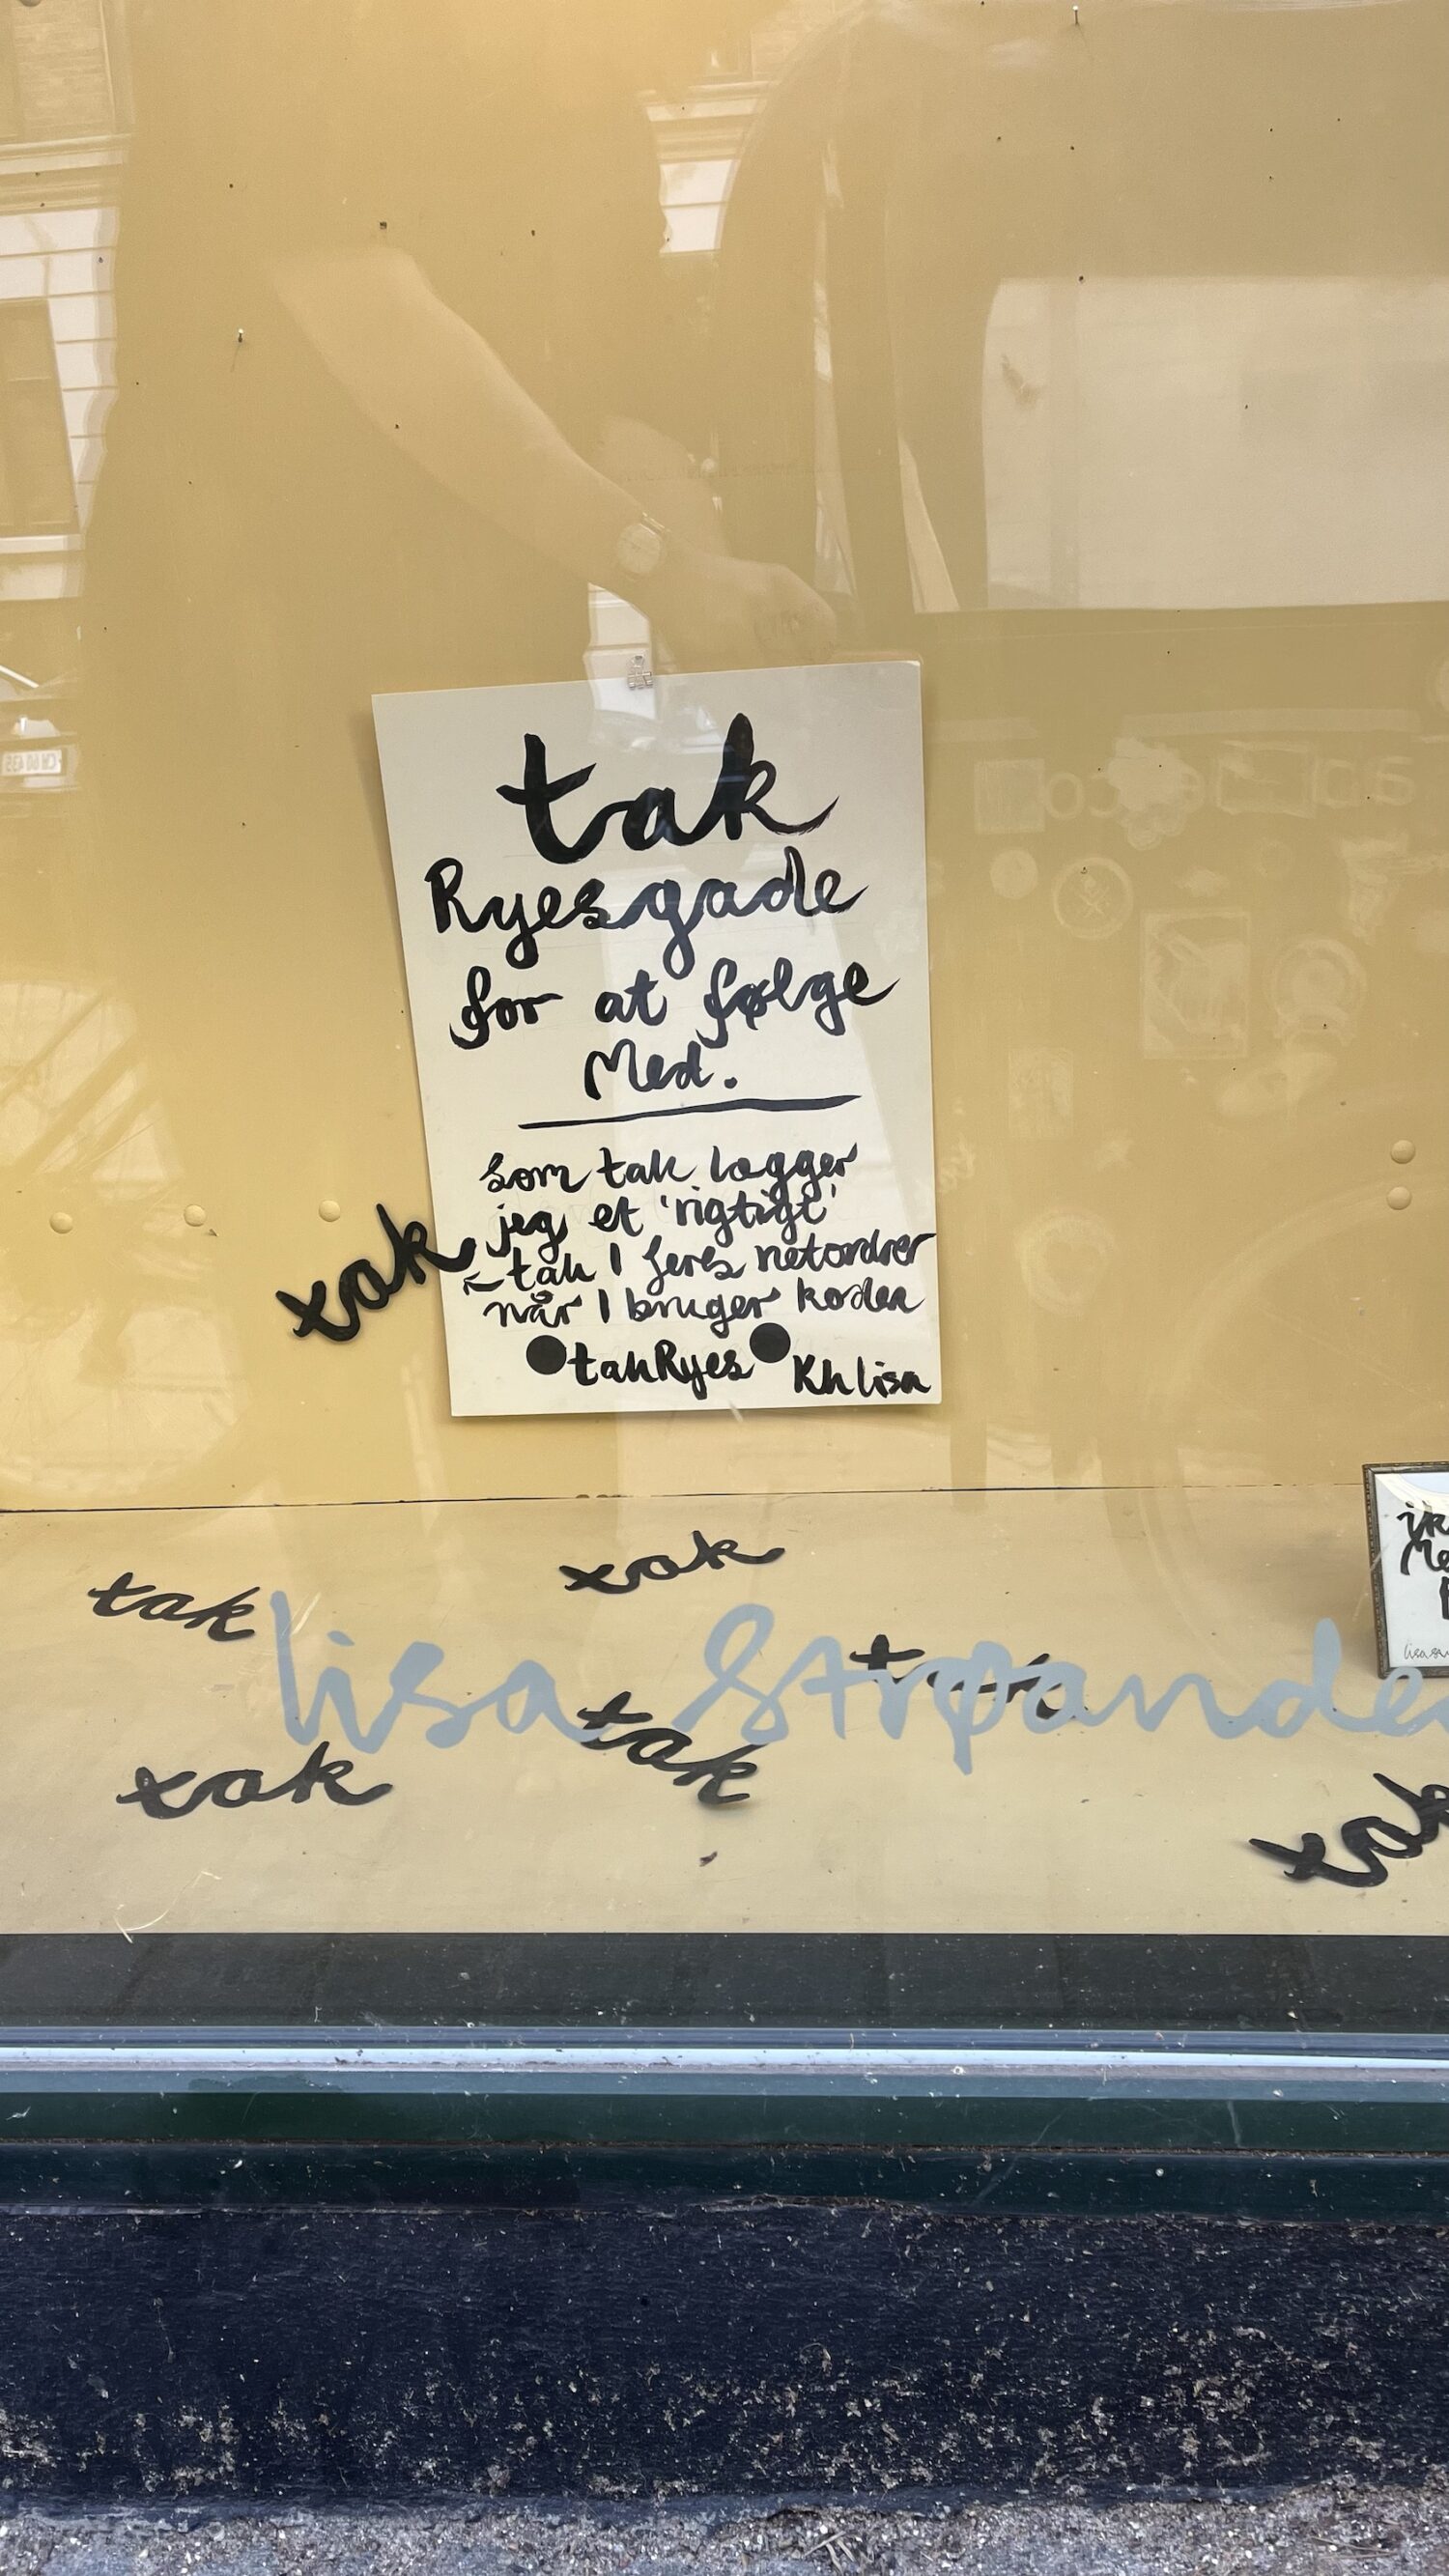 tak
Ryesgade
for at følge
Med.
som tak lægger
jeg et 'rigtigt'
←tak I jeres netordrer
når I bruger koden
●takRyes●
Kh lisa
tak
tak
tak
lisa
tak
tak
tak
tak